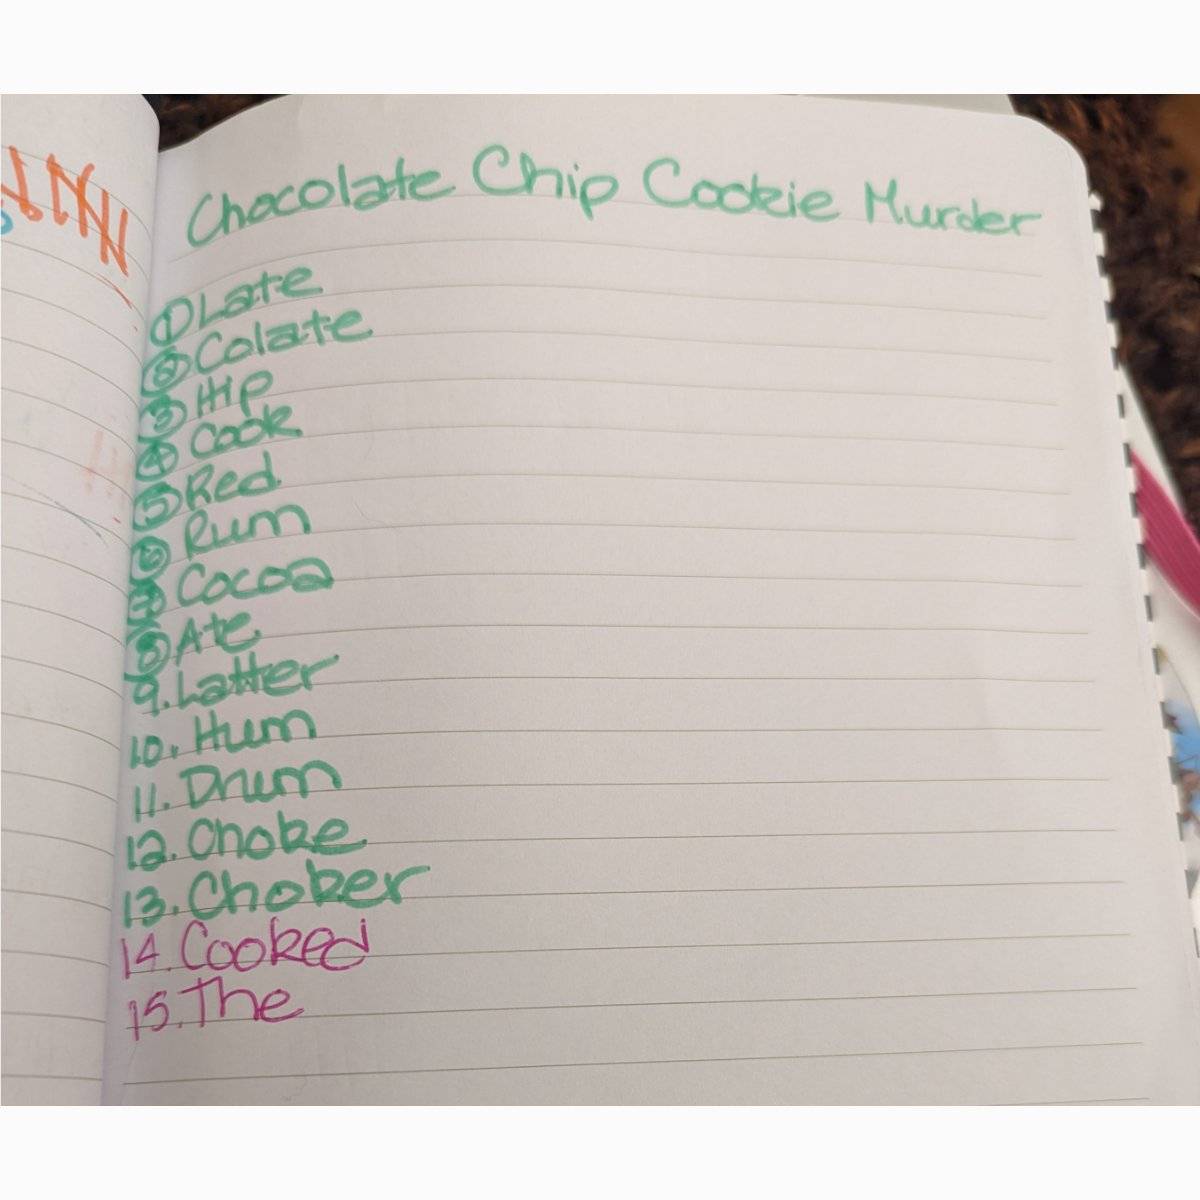 Chocolate Chip Cookie Murder
① Late
② Colate
③ Hip
④ Cook
⑤ Red
⑥ Rum
⑦ Cocoa
⑧ Ate
9. Latter
10. Hum
11. Drum
12. Choke
13. Choker
14. Cooked
15. The